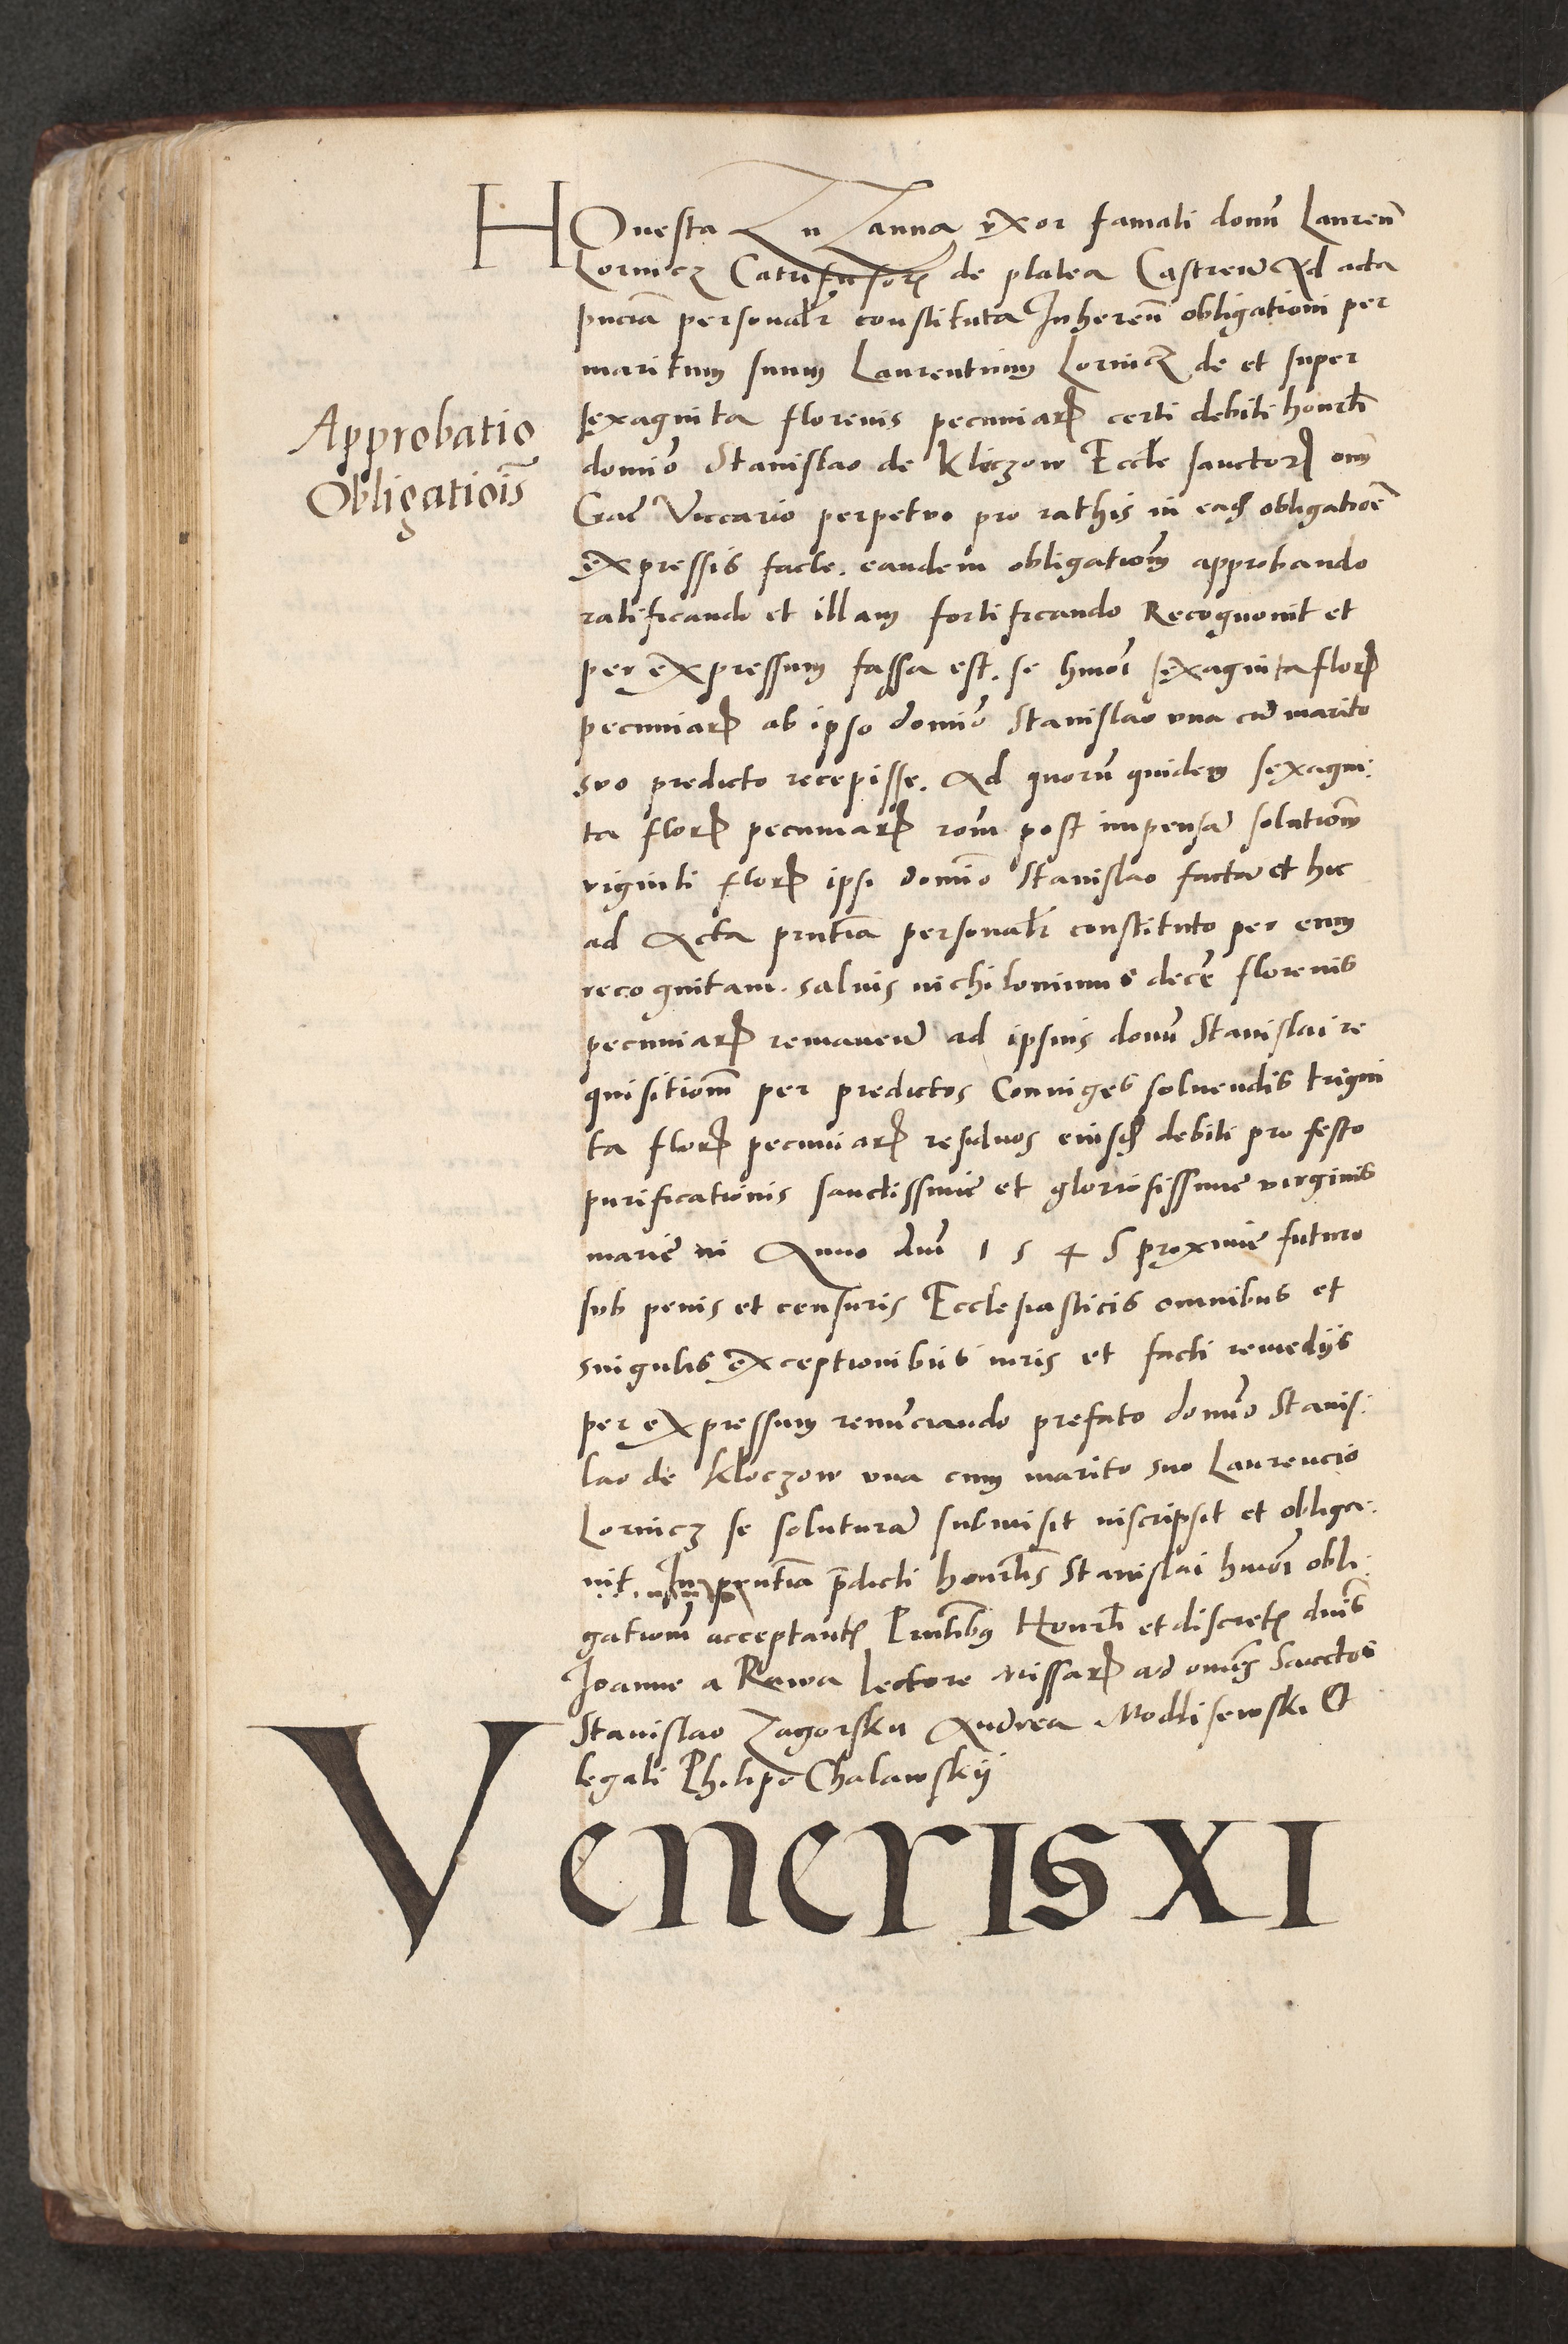 HOnesta ZuZanna vxor famati domī Laurenī
Lornicz de platea Castren̄ Ad acta
pn̄ciā personalr̄ constituta Inheren̄ obligationi per
maritum suum Laurentium Lornicz de et super
sexaginta florenis pecuniarꝝ certi debiti honorbl̄i
domīo Stanislao de Kleczow Eccl̄e sanctorꝝ om̄
Viccario perpetuo pro rathis in eadꝫ obligatiōe
expressis facte. eandem obligationē approbando
ratificando et illam fortificando Recognouit et
per expressum fassa est. se hmōi sexaginta florꝝ
pecuniarꝝ ab ipso domīo Stanislao vna cū marito
suo predicto recepisse. Ad quorū quidem sexagin:
ta florꝝ pecuniarꝝ rōm post impensā solutionē
viginti florꝝ ipsi domīo Stanislao factā et hic
ad Acta pn̄tia personalr̄ constituto per eum
recognitam. saluis nichilominus decē florenis
pecuniarꝝ remanen̄ ad ipsius domī Stanislai re
quisitionē per predictos Coniuges soluendis trigin
ta florꝝ pecuniarꝝ residuos eiusdꝫ debiti pro festo
purificationis sanctissime et gloriosissime virginis
marie in Anno dn̄i 1545 proxime futuro
sub penis et censuris Ecclesiasticis omnibus et
singulis exceptionibus iuris et facti remedijs
per expressum renunciando prefato domīo Stanis:
lao de Kloczow vna cum marito suo Laurencio
Lornicz se soluturā submisit inscripsit et obliga:
uit. In pn̄tia p̄dicti honorbl̄is Stanislai hmōi obli:
gationē acceptantꝭ Pn̄tibus Honorbl̄i et discretꝭ dn̄is
Ioanne a Rawa lectore Missarꝝ ad omn̄es Sanctos
Stanislao Zagorskij Andrea Modlisewski &
legali Philipo Chalawskij
Approbatio
Obligatiōis
Veneris XI